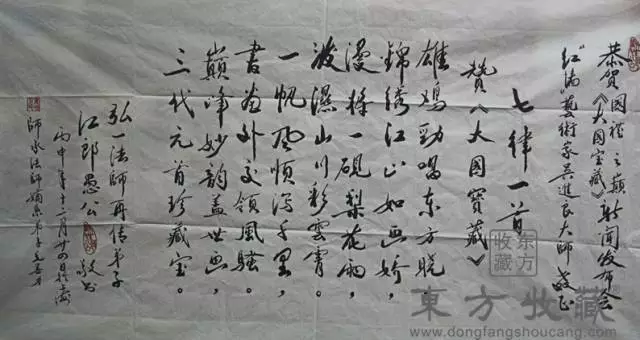 恭贺国礼之巅《大国宝藏》新闻发布会
艺術家吴進良大師 教正
七律一首
贊《大国寶藏》
雄鸡勁唱东方晓
锦绣江山如画娇，
漫一硯梨花雨，
波濕山川彩雲霄。
一帆风顺泻千里，
書画外交領風騷。
巔峰妙韵盖世画，
三代元首珍藏宝。
弘一法師再传弟子
江郎愚公 敬书
丙申年十二月廿四晨
師承法師嫡系弟子
東方收藏
www.dongfangshoucang.com